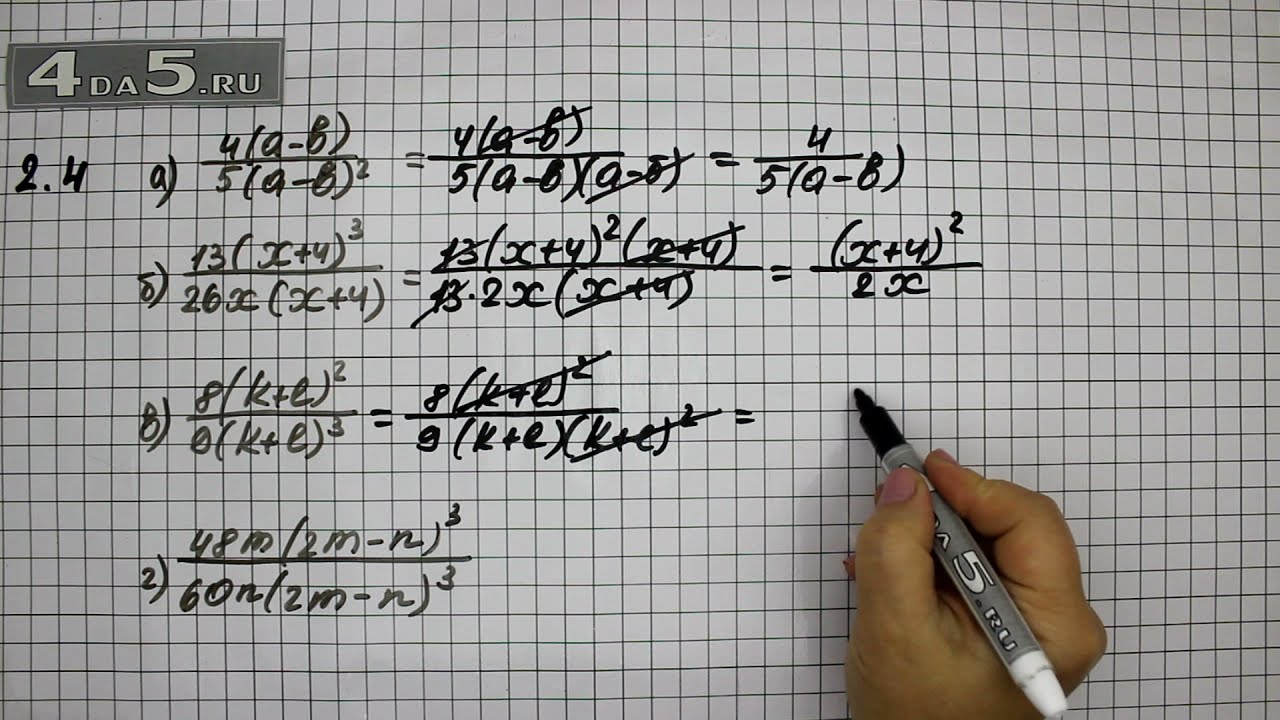 4DA5.RU
2.4 а) 4(a-b)/5(a-b)² = 4(a-b)/5(a-b)(a-b) = 4/5(a-b)
б) 13(x+4)³/26x(x+4) = 13(x+4)²(x+4)/13·2x(x+4) = (x+4)²/2x
в) 8(k+l)²/9(k+l)³ = 8(k+l)²/9(k+l)(k+l)² =
г) 48m(2m-n)³/60n(2m-n)³
4DA5.RU